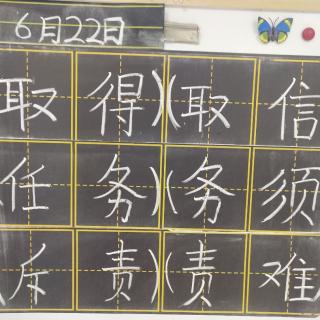 6月22日
取得)(取信
任务)(务须
(斥责)(责难